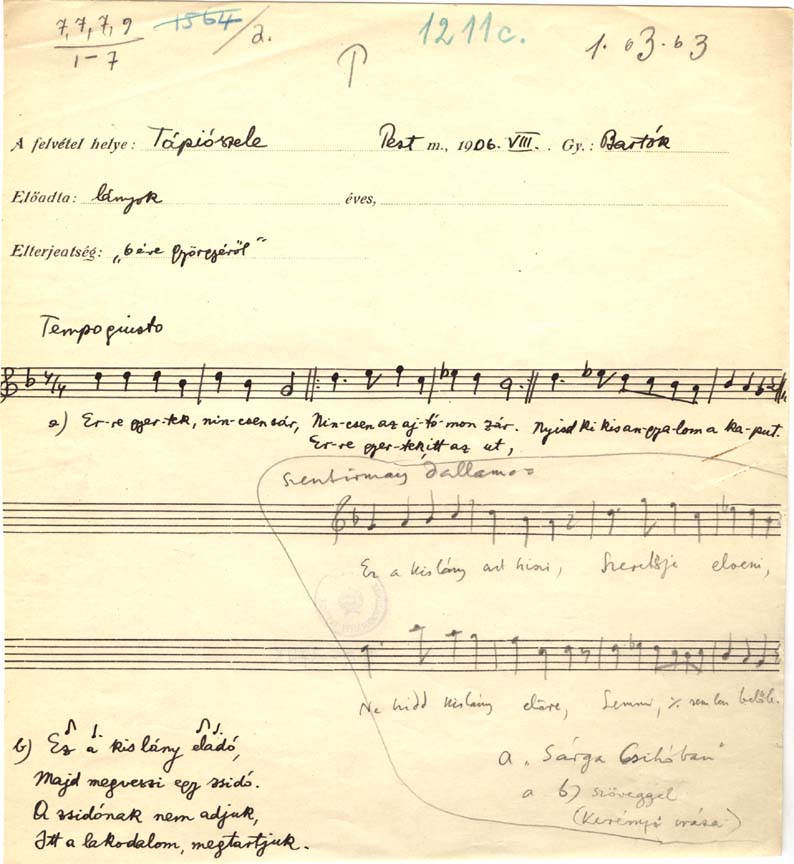 7, 7, 7, 9 1564/a. 1211c. 1. 63. 63
1-7
A felvétel helye: Tápiószele Pest m., 1906. VIII. Gy.: Bartók
Előadta: lányok éves,
Elterjeatség: „6 éve györgyéről“
Tempogiusto
a) Er-re gyer-tek, nin-csen sár, Nin-csen az aj-tó-mon zár. Nyisd ki kis an-gya-lom a ka-put.
Er-re gyer-tek, itt az ut,
Szentirmay dallama =
Ez a kislány azt hiszi, Szeretője elveszi,
Ne hidd kislány előre, Semmi, % sem lesz belőle.
a „Sárga Csikóban“
a b) szöveggel
(Kerényi irása)
b) Ez a kis lány eladó,
Majd megveszi egy zsidó.
A zsidónak nem adjuk,
Itt a lakodalom, megtartjuk.